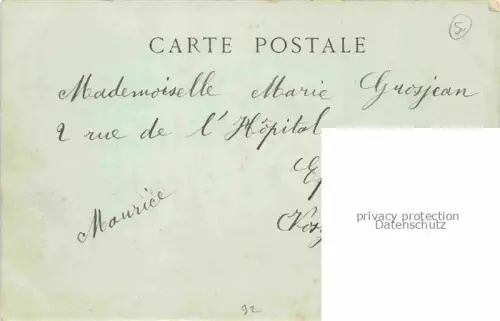 5
CARTE POSTALE
Mademoiselle Marie Grosjean
2 rue de l'Hôpital
Maurice
privacy protection
Datenschutz
92